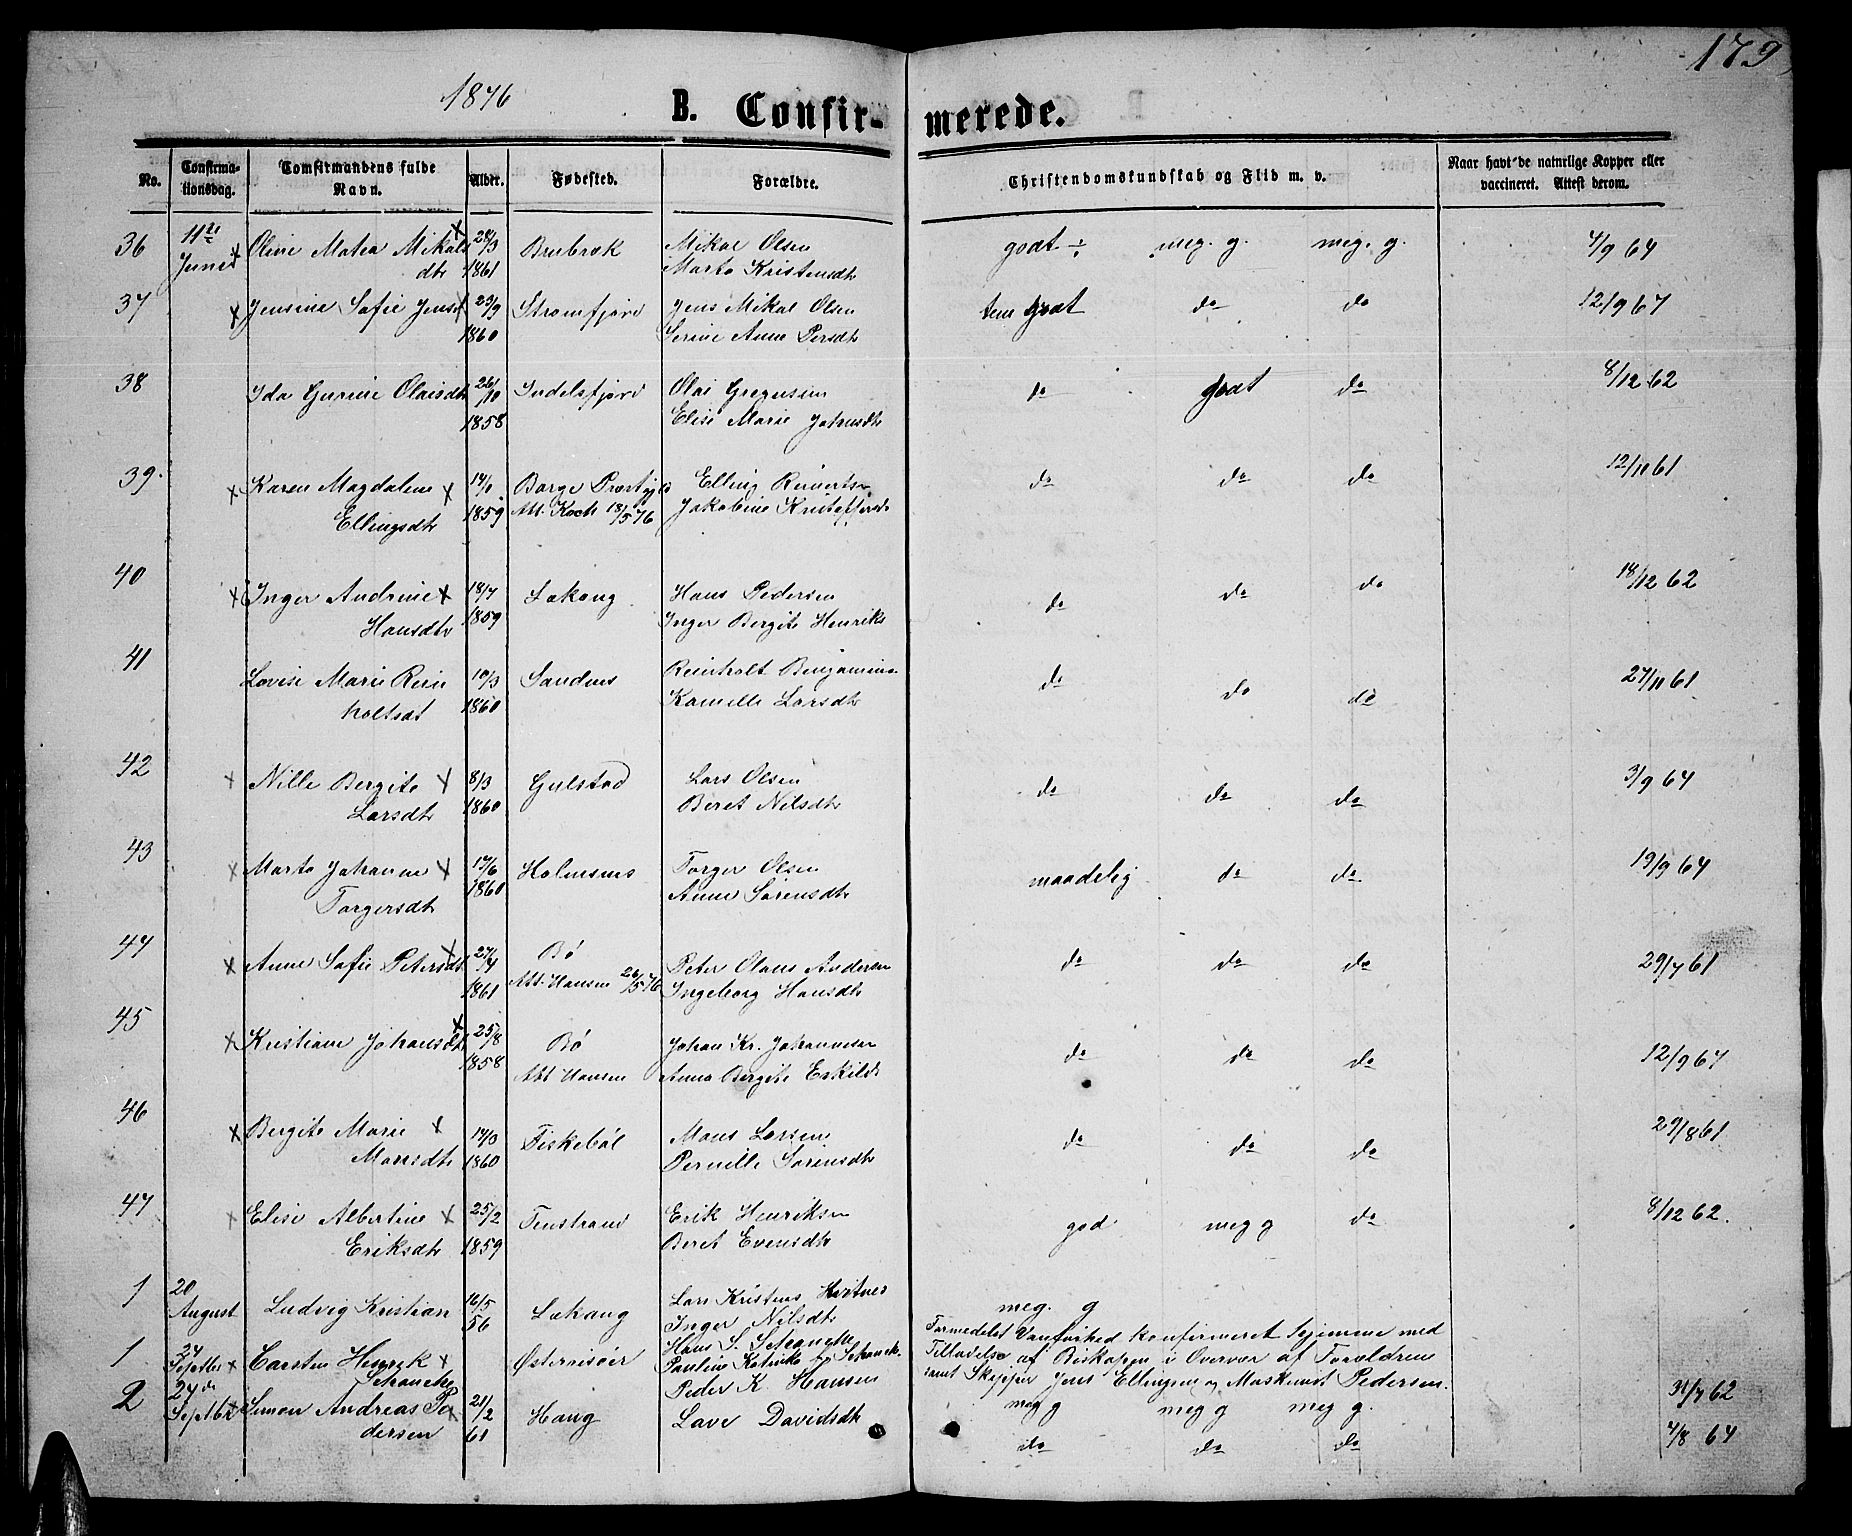 179
1876
B. Confir- merede.
No. Confirma-tionsdag. Comfirmandens fulde Navn. Alder. Fødested. Forældre. Christendomskundskab og Flid m. v. Naar havt de naturlige Kopper eller vaccineret. Attest derom.
36 11te Junei x Oline Matea Mikals x 24/3 Brubræk Mikal Olsen godt ÷ meg. g. meg. g. 4/9 64
dtr 1861 Marta Kristensdtr
37 x Jensine Sofie Jensd x 23/9 Strømfjord Jens Mikal Olsen tem godt do do 12/9 67
1860 Serine Anne Persdtr
38 Ida Gurine Olaisdtr 26/10 Indelsfjord Olai Gregusen do godt do 8/12 62
1858 Elise Marie Johnsdtr
39. x Karen Magdalene x 14/1 Borge Præstgjld Elling Reinertsn do do do 12/11 61
Ellingsdtr 1859 Att. Koch 18/5 76 Jakobine
40 x Inger Andrine x 18/7 Løkang Hans Pedersen do do do 18/12 62
Hansdtr 1859 Inger Bergite Henriks
41 Lovise Marie Rein 10/3 Sandnes Reinholt Benjamins do do do 27/11 61
holtsdt 1860 Kamille Larsdtr
42 x Nille Bergite x 8/3 Gulstad Lars Olsen do do do 3/9 64
Larsdtr 1860 Beret Nilsdtr
43 x Marta Johanne x 17/6 Holmsnes Torger Olsen maadelig do do 19/9 64
Torgersdtr 1860 Anne Sørensdtr
44 x Anne Sofie Petersdt x 27/4 Bø Peter Olaus Andersen do do do 29/7 61
1861 Att. Hansen 26/5 76 Ingeborg Hansdtr
45 x Kristiane Johansdtr x 25/8 Bø Johan Kr. Johannesen do do do 12/9 67
1858 Att Hansen Anna Bergite Eskilds
46 x Bergite Marie x 14/3 Fiskebøl Mons Larsen do do do 29/8 61
Monsdtr 1860 Pernille Sørensdtr
47 x Elise Albertine x 25/2 Tenstrand Erik Henriksen god meg g do 8/12 62.
Eriksdtr 1859 Beret Evensdtr
1 20 August Ludvig Kristian 16/5 56 Løkang Lars Kristens Hvitnes meg. g
Inger Nilsdtr
1 24 Septbr x Carsten Henrik x Østerrisöer Hans S. Schanche Formedelst Vanførhed konfirmeret hjemme med
Schanche Pauline Schanck. Tilladelse af Biskoppen i Overvær af Forældrene
samt Skipper Jens Ellingsen og Pedersen.
2 24de Septbr x Simon Andreas Pe x 21/2 61 Haug Peder K Hansen meg g meg g meg g. 31/7 62
dersen Lave Davidsdtr do do do 4/8 64